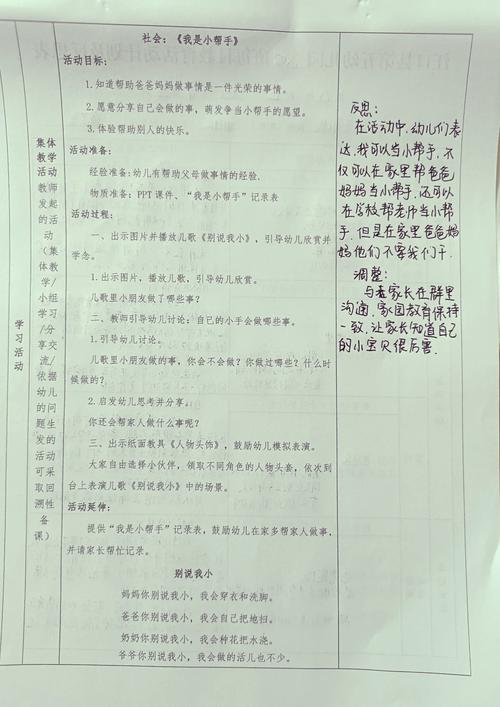 学习活动
集体
教学
活动
教师
发起
的活
动
（集
体教
学/
小组
学习
/分
享交
流/
依据
幼儿
的问
题生
发的
活动
可采
取回
溯性
备
课）
社会：《我是小帮手》
活动目标：
1.知道帮助爸爸妈妈做事情是一件光荣的事情。
2.愿意分享自己会做的事，萌发争当小帮手的愿望。
3.体验帮助别人的快乐。
活动准备：
经验准备:幼儿有帮助父母做事情的经验.
物质准备：PPT课件、“我是小帮手”记录表
活动过程：
一、出示图片并播放儿歌《别说我小》，引导幼儿欣赏并
学念。
1.出示图片，播放儿歌，引导幼儿欣赏。
儿歌里小朋友做了哪些事？
二、教师引导幼儿讨论：自己的小手会做哪些事。
1.引导幼儿讨论。
儿歌里小朋友做的事，你会不会做？你做过哪些？什么时
候做的？
2.启发幼儿思考并分享。
你还会帮家人做什么事呢？
三、出示纸面教具《人物头饰》，鼓励幼儿模拟表演。
大家自由选择小伙伴，领取不同角色的人物头套，依次到
台上表演儿歌《别说我小》中的场景。
活动延伸：
提供“我是小帮手”记录表，鼓励幼儿在家多帮家人做事，
并请家长帮忙记录。
别说我小
妈妈你别说我小，我会穿衣和洗脚。
爸爸你别说我小，我会自己把地扫。
奶奶你别说我小，我会种花把水浇。
爷爷你别说我小，我会做的活儿也不少。
反思：
在活动中，幼儿们表
达，我可以当小帮手，不
仅可以在家里帮爸爸
妈妈当小帮手，还可以
在学校帮老师当小帮
手，但是在家里爸爸妈
妈他们不要我们干.
调整：
与家长在群里
沟通，家园教育保持
一致，让家长知道自己
的小宝贝很厉害.